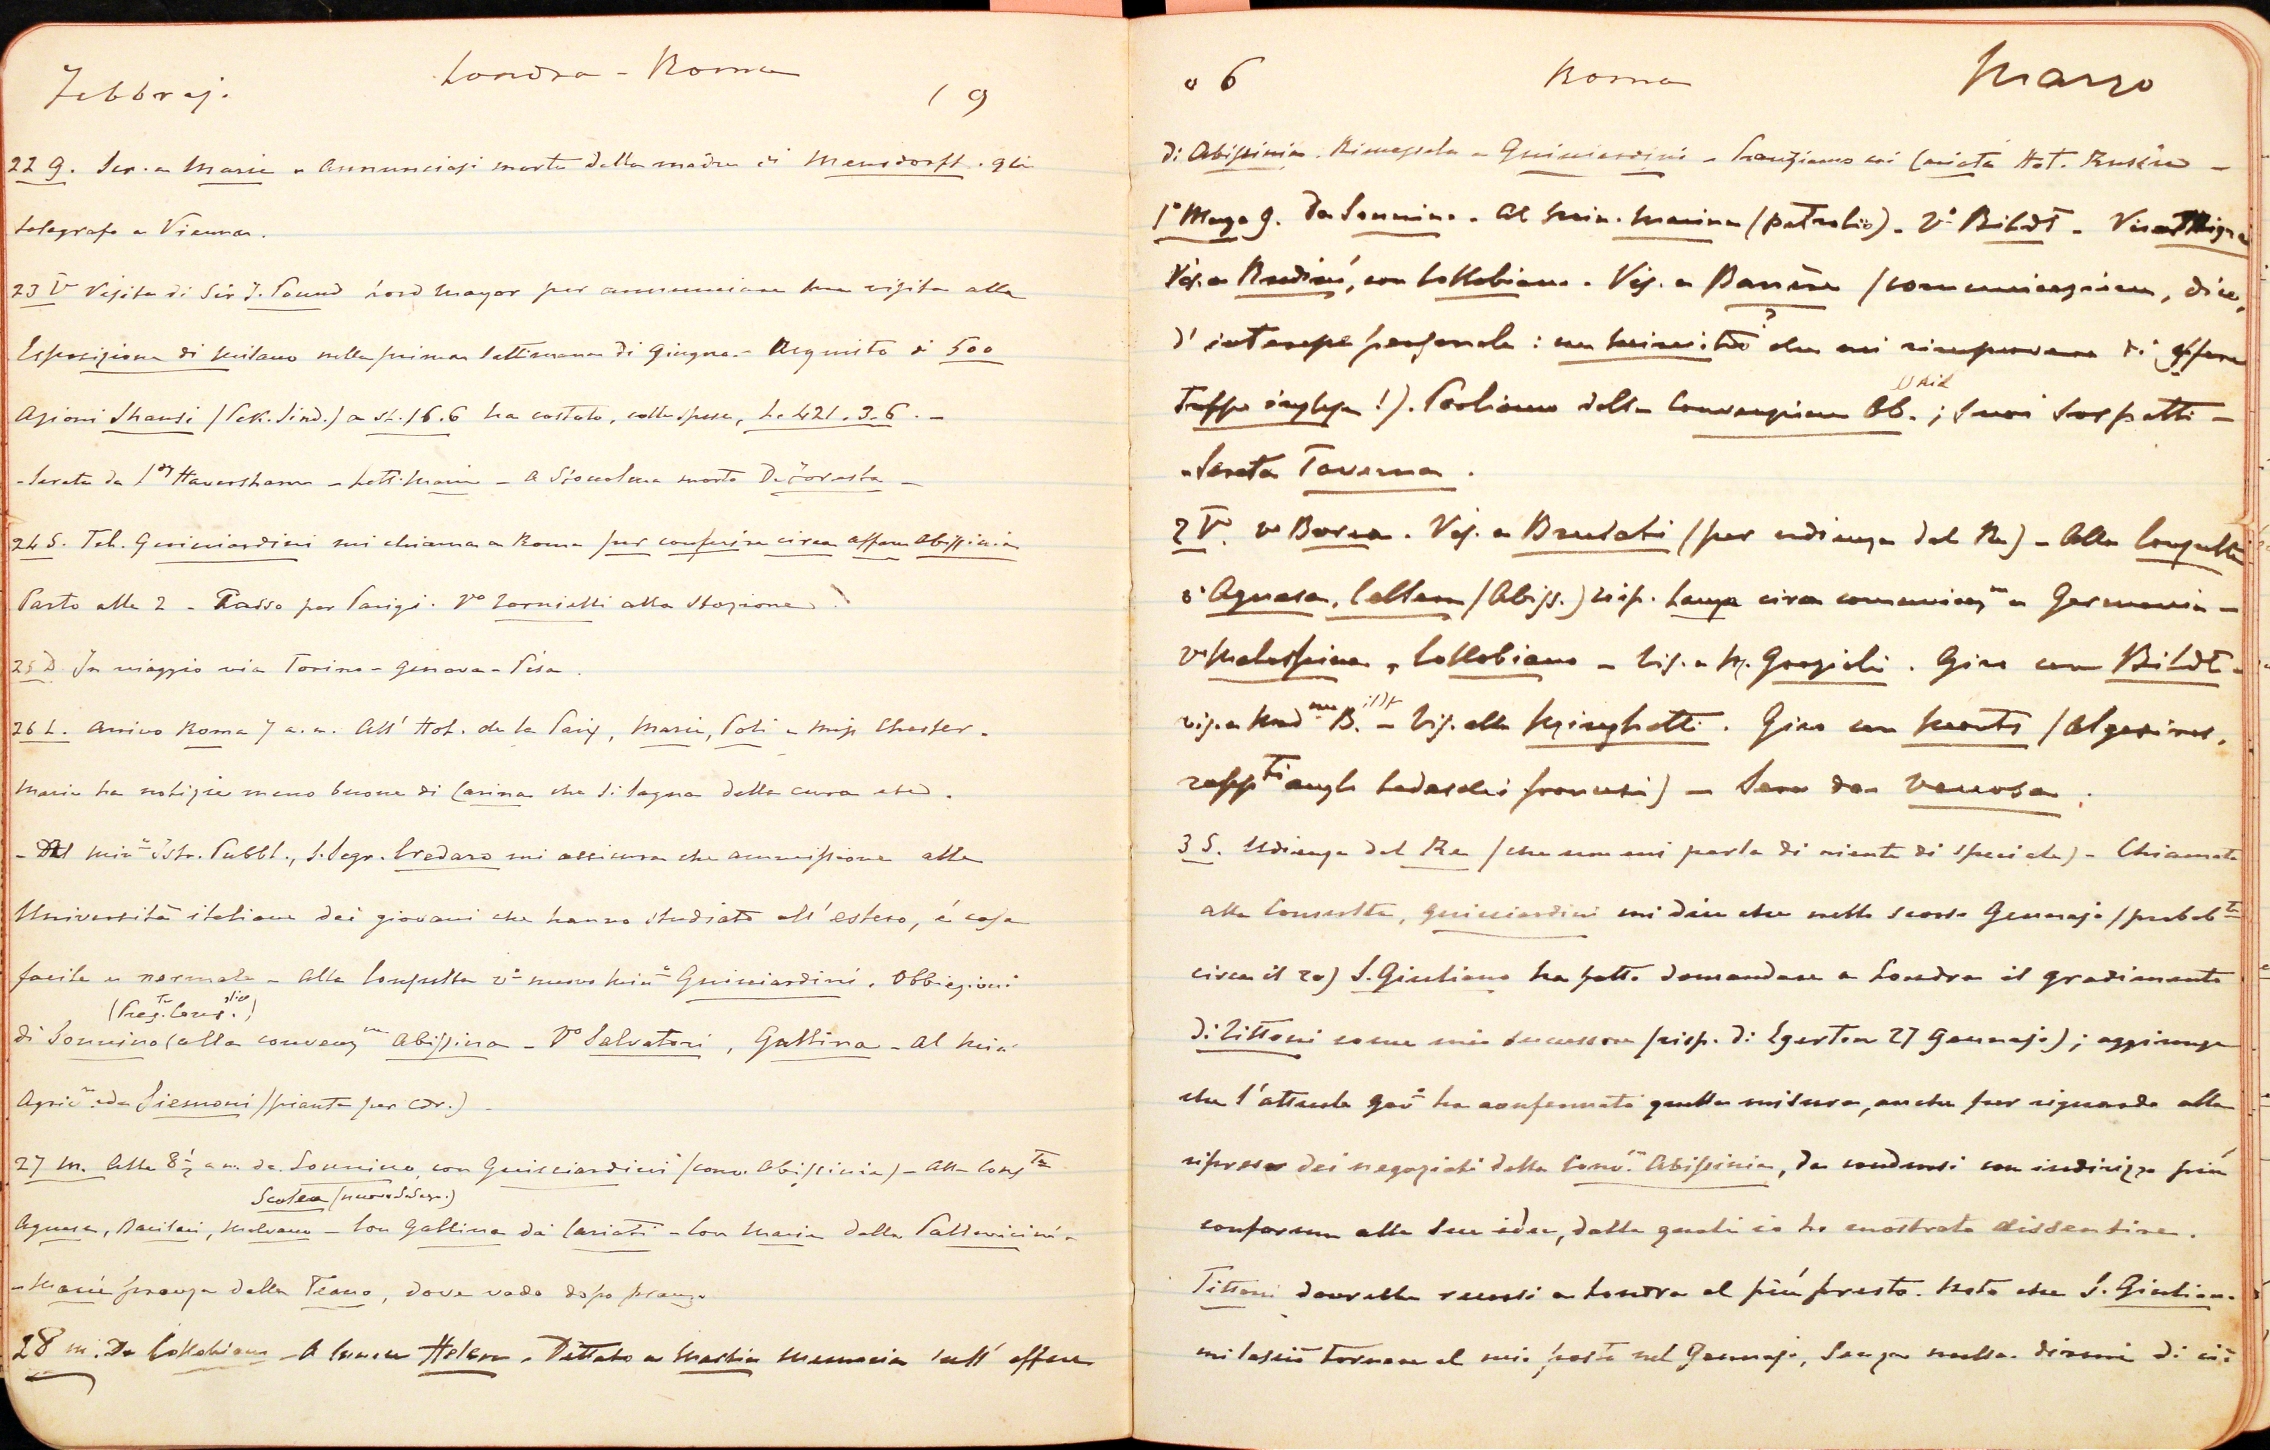 Febbraj. Londra - Roma 19
22 G. Scr. a Marie - annunciasi morte della madre di Mensdorff. gli
telegrafo a Vienna.
23 Vi Visita di Sir J. Pound Lord Mayor per annunciare sua visita alla
Esposizione di Milano nella prima settimana di Giugno. - Acquisto di 500
Azioni Shansi (Pek. Sind.) a st. 16.6 ha costato, colle spese, L. 421.3.6. -
- Serata da Ldy Haversham - Lett. Marie - a morto De Foresta -
24 S. Tel. Guicciardini mi chiama a Roma per conferire circa affare Abissinia
Parto alle 2 - Passo per Parigi. Vo Tornielli alla stazione.
25 D In viaggio via Torino - Genova - Pisa.
26 L. Arrivo Roma 7 a.m. All' Hot. de la Paix, Marie, Poli e Miss Chester.
Marie ha notizie meno buone di Carina che si lagna della cura
- Al Mino Istr. Pubbl., S. Segr. Credaro mi assicura che ammissione alle
Università italiane dei giovani che hanno studiato all'estero, è cosa
facile e normale - Alla Consulta vo nuovo Mino Guicciardini. Obbiezioni
(Pres.te Cons.glio)
di Sonnino (alla convenzne Abissina - Vo Salvatori, Gallina - Al Min
Agric.ra da Siemoni (piante per
27 M. Alle 8½ a m. da Sonnino, con Guicciardini (conv. Abissinia) - Alla Consta
Scalea (nuovo S. Segr.)
Agnesa, Bacilari, Malvano - Con Gallina dai Cariati - Con Marie dalla Pallavicini -
- Marie pranza dalla Teano, dove vado dopo pranzo.
28 m. Da Collobiano - A Helen. Dettato a Martin Memoria sull' affare
06 Roma Marzo
di Abissinia. Rimessala a Guicciardini - Pranziamo coi Cariati Hot. -
1o Marzo G. Da Sonnino. Al Min. Marina (petrolio). Vo Bildt.
Vis. a Rudinì, con Collobiano. Vis. a Barrère (comunicazione, dice,
d' interesse personale: un che mi rimprovera di essere
troppo inglese!). Parliamo della Convenzione Ab.; suoi sospetti -
- Serata Taverna.
2 Vi vo Borea. Vis. a Brusati (per udienza dal Re) - Alla Consulta
vo Agnesa, (Abiss.) risp. Lanza circa comunicazne a Germania -
vo Malaspina, Collobiano - Vis. a Grazioli. Giro con Bildt -
vis. a Madme Bildt - Vis. alla Minghetti. Giro con Monts (Algesiras,
rappti anglo tedeschi francesi) - Sera da Venosa.
3 S. Udienza dal Re (che non mi parla di niente di speciale) - Chiamato
alla Consulta, Guicciardini mi dice che nello scorso Gennajo (probabte
circa il 20) S. Giuliano ha fatto domandare a Londra il gradimento
di Tittoni come mio successore (risp. di Egerton 27 Gennajo); aggiunge
che l'attuale govo ha confermato quella misura, anche per riguardo alla
ripresa dei negoziati della Convne Abissinia, da condursi con indirizzo più
conforme alle sue idee, dalle quali io ho mostrato dissentire.
Tittoni dovrebbe recarsi a Londra al più presto. Noto che S. Giuliano
mi lasciò tornare al mio posto nel Gennajo, senza nulla dirmi di ciò